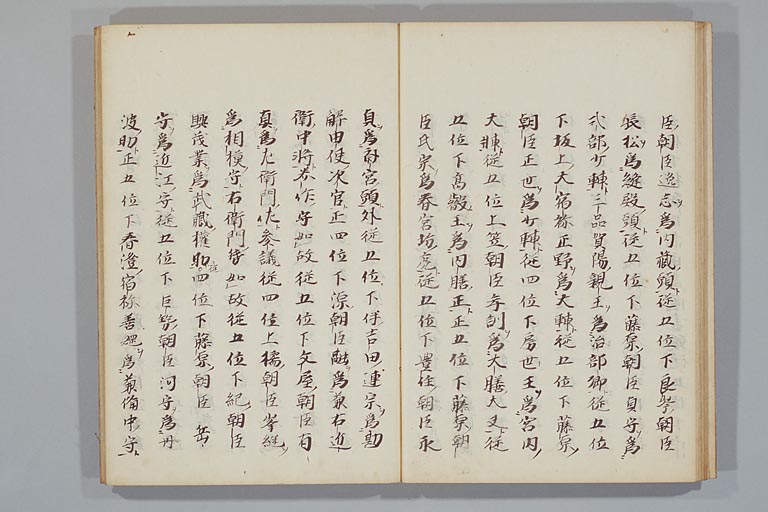 臣朝臣逸志為内蔵頭従五位下良岑朝臣
長松為縫殿頭従五位下藤原朝臣貞守為
式部少輔三品賀陽親王為治部卿従五位
下坂上大宿祢正野為大輔従五位下藤原
朝臣正世為少輔従四位下房世王為宮内
大輔従五位上笠朝臣孝訓為大膳大夫従
五位下高叡王為内膳正正五位下藤原朝
臣氏宗為春宮坊亮従五位下豊住朝臣永
貞為斎宮頭外従五位下伴吉田連宗為勘
解由使次官正四位下源朝臣融為兼右近
衛中将美作守如故従五位下文屋朝臣有
真為左衛門佐参議従四位上橘朝臣岑継
為相模守右衛門督如故従五位下紀朝臣
興茂業為武蔵権助四位下藤原朝臣岳
守為近江守従五位下巨勢朝臣河守為丹
波助正五位下春澄宿祢善縄為兼備中守